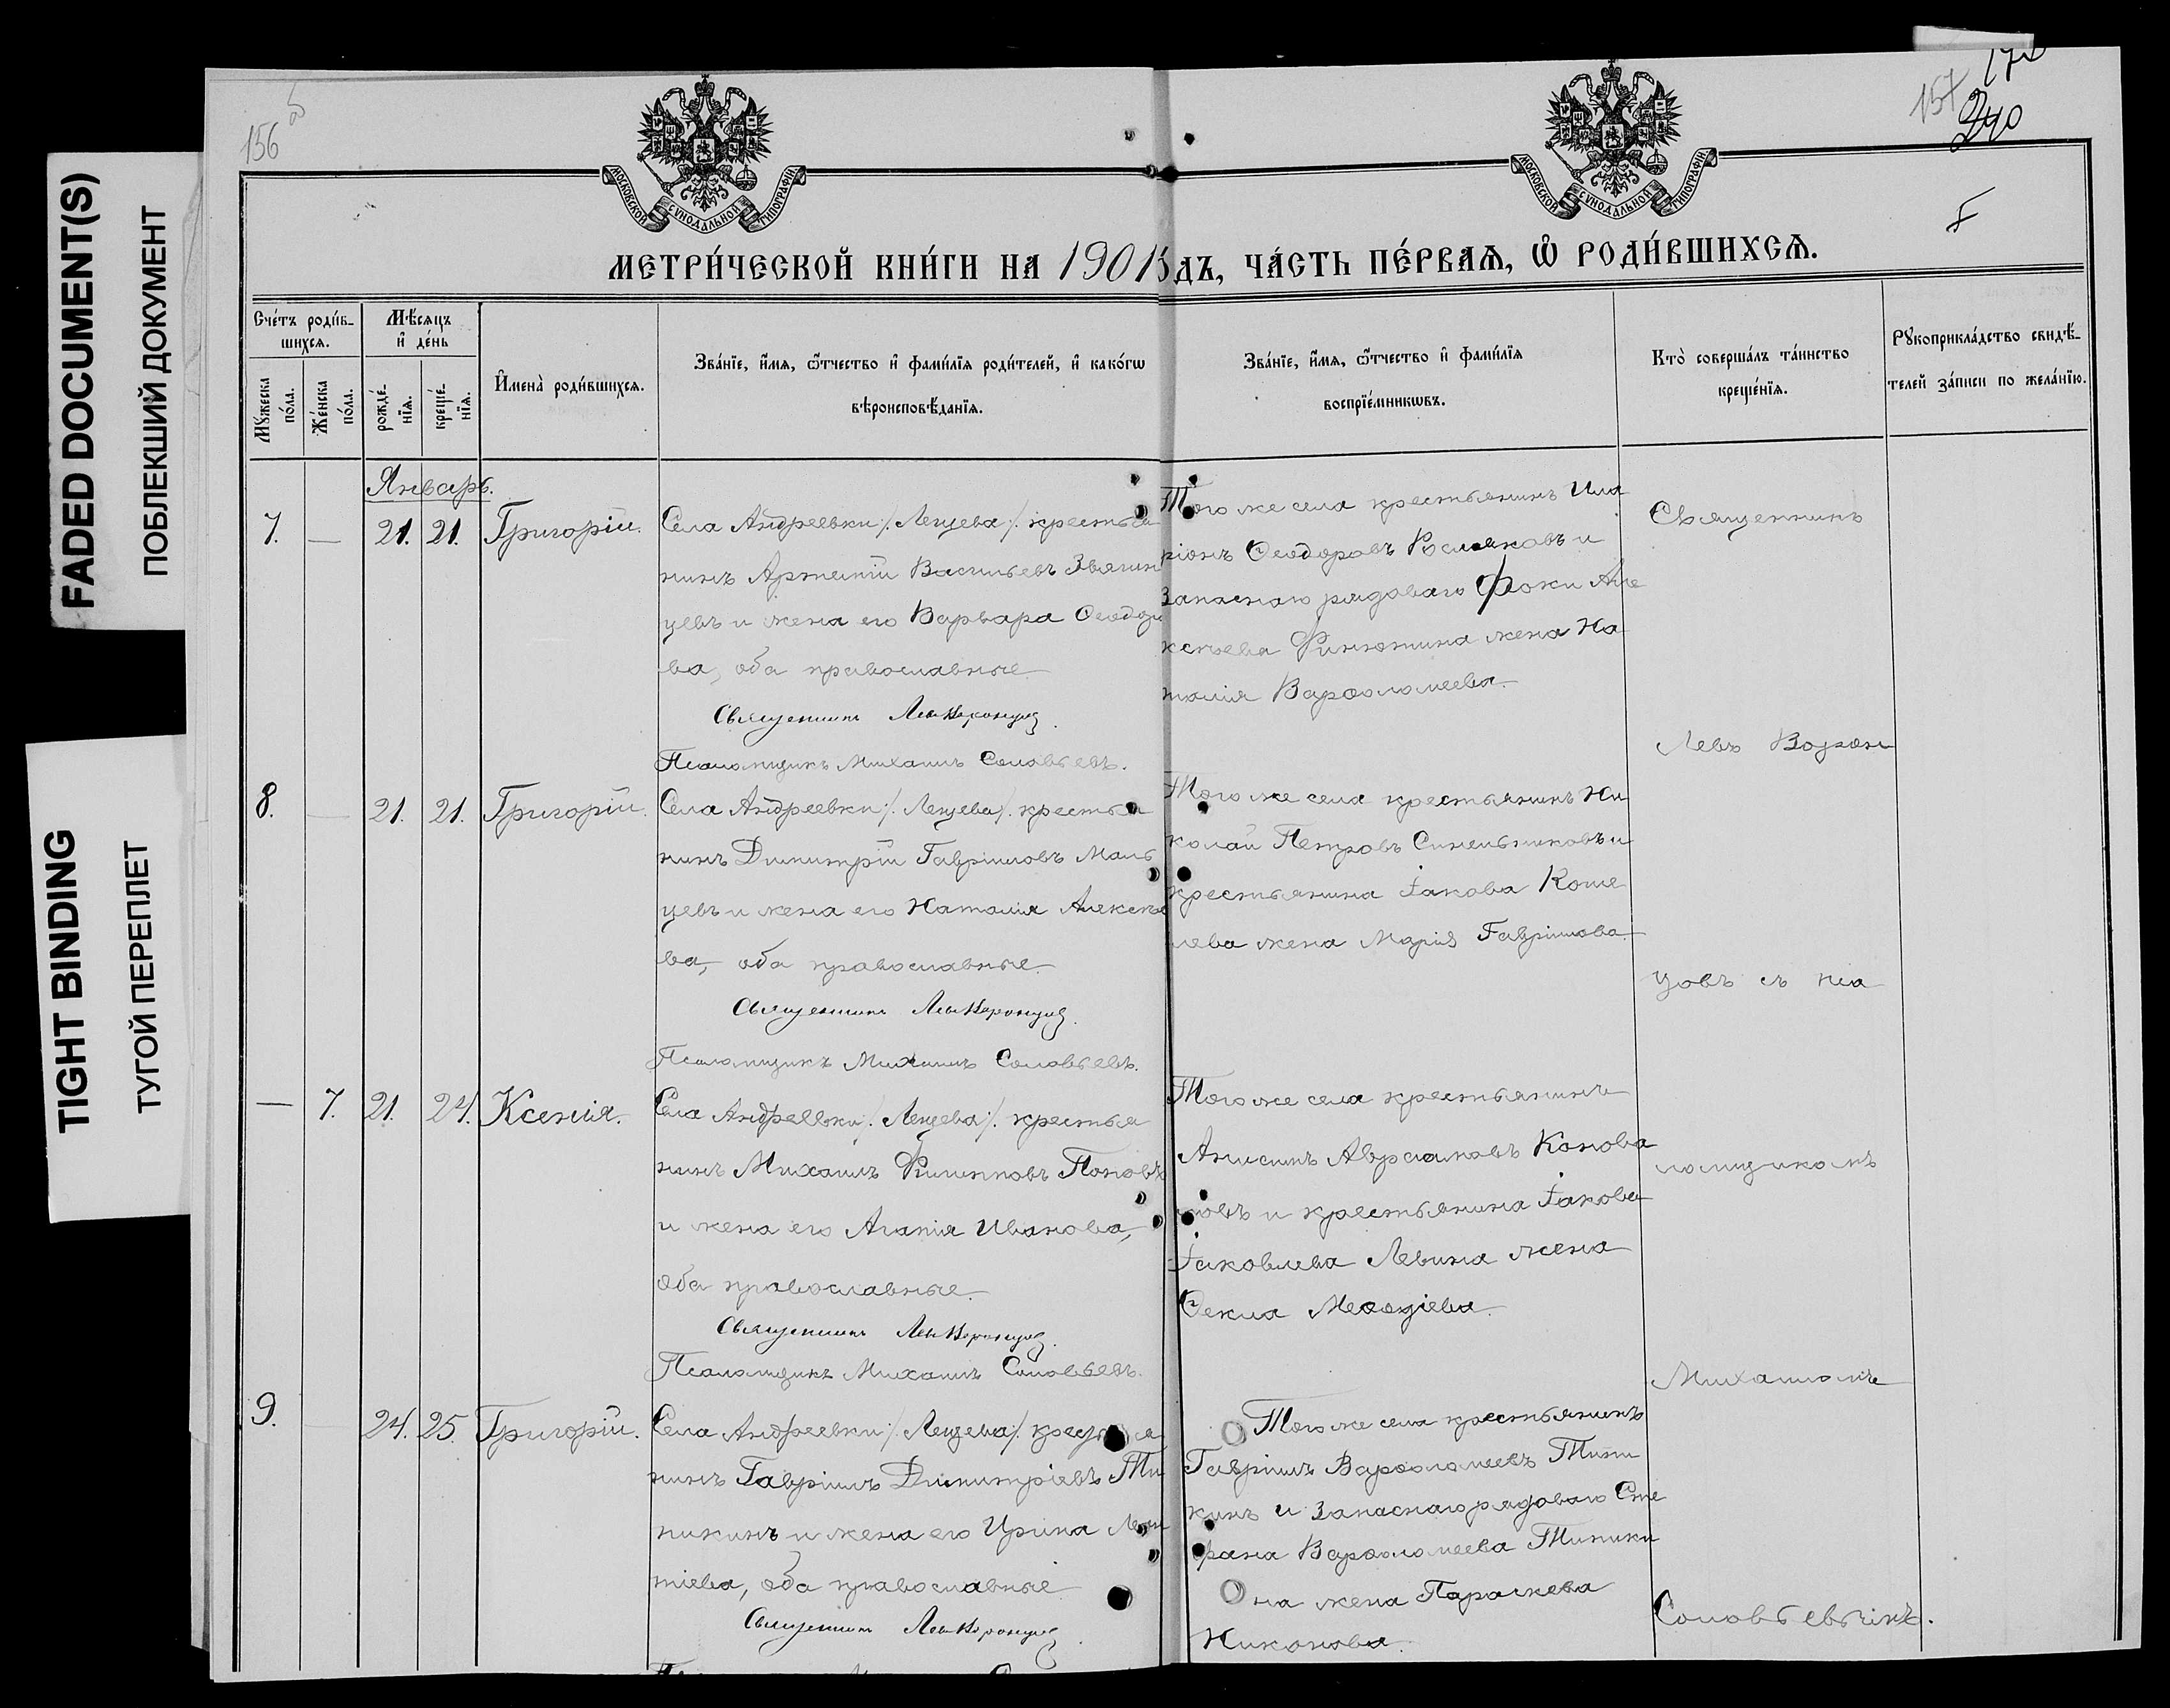 FADED DOCUMENT(S)
ПОБЛЕКШИЙ ДОКУМЕНТ
TIGHT BINDING
ТУГОЙ ПЕРЕПЛЕТ
156
157
240
МОСКОВСКОЙ СѴНОДАЛЬНОЙ ТИПОГРАФІИ
МОСКОВСКОЙ СѴНОДАЛЬНОЙ ТИПОГРАФІИ
МЕТРИ́ЧЕСКОЙ КНИ́ГИ НА 1901 ДЪ, ЧА́СТЬ ПЕ́РВАѦ, Ѡ҆ РОДИ́ВШИХСѦ.
Сче́тъ роди́в-
шихсѧ.
Мꙋ́жеска по́ла.
Же́нска по́ла.
Мѣ́сѧцъ
и҆ де́нь
рожде́-
нїѧ.
креще́-
нїѧ.
И҆мена̀ роди́вшихсѧ.
Зва́нїе, и҆́мѧ, ѻ҆́тчество и҆ фами́лїѧ роди́телей, и҆ како́гѡ
вѣроисповѣ́данїѧ.
Зва́нїе, и҆́мѧ, ѻ҆́тчество и҆ фами́лїѧ
воспрїе́мникѡвъ.
Кто̀ соверша́лъ та́инство
креще́нїѧ.
Рꙋкоприкла́дство свидѣ́-
телей за́писи по жела́нїю.
Январь.
7. — 21. 21. Григорій.
Села Андреевки /: Лещева :/ крестья
нинъ Артемій Васильевъ Звягин
цевъ и жена его Варвара Ѳеодоро
ва, оба православные.
Священникъ Левъ Воронцовъ.
Псаломщикъ Михаилъ Соловьевъ.
Того же села крестьянинъ Ила
ріонъ Ѳеодоровъ Росляковъ и
запаснаго рядоваго Фоки Але
ксѣева Финютина жена На
талія Варѳоломеева.
8. — 21. 21. Григорій.
Села Андреевки /: Лещева :/ крестья
нинъ Димитрій Гавріиловъ Маль
цевъ и жена его Наталія Алексѣе
ва, оба православные.
Священникъ Левъ Воронцовъ.
Псаломщикъ Михаилъ Соловьевъ.
Того же села крестьянинъ Ни
колай Петровъ Синельниковъ и
крестьянина Іакова Коше
лева жена Марія Гавріилова.
— 7. 21. 24. Ксенія.
Села Андреевки /: Лещева :/ крестья
нинъ Михаилъ Филипповъ Поповъ
и жена его Агапія Иванова,
оба православные.
Священникъ Левъ Воронцовъ.
Псаломщикъ Михаилъ Соловьевъ.
Того же села крестьянинъ
Анисимъ Авраамовъ Конова
ловъ и крестьянина Іакова
Іаковлева Левина жена
Ѳекла Меѳодіева.
9. — 24. 25. Григорій.
Села Андреевки /: Лещева :/ крестья
нинъ Гавріилъ Димитріевъ Ти
пикинъ и жена его Ирина Леон
тіева, оба православные
Священникъ Левъ Воронцовъ
Того же села крестьянинъ
Гавріилъ Варѳоломеевъ Типи
кинъ и запаснаго рядоваго Сте
фана Варѳоломеева Типики
на жена Параскева
Никонова.
Священникъ
Левъ Ворон
цовъ съ пса
ломщикомъ
Михаиломъ
Соловьевымъ.